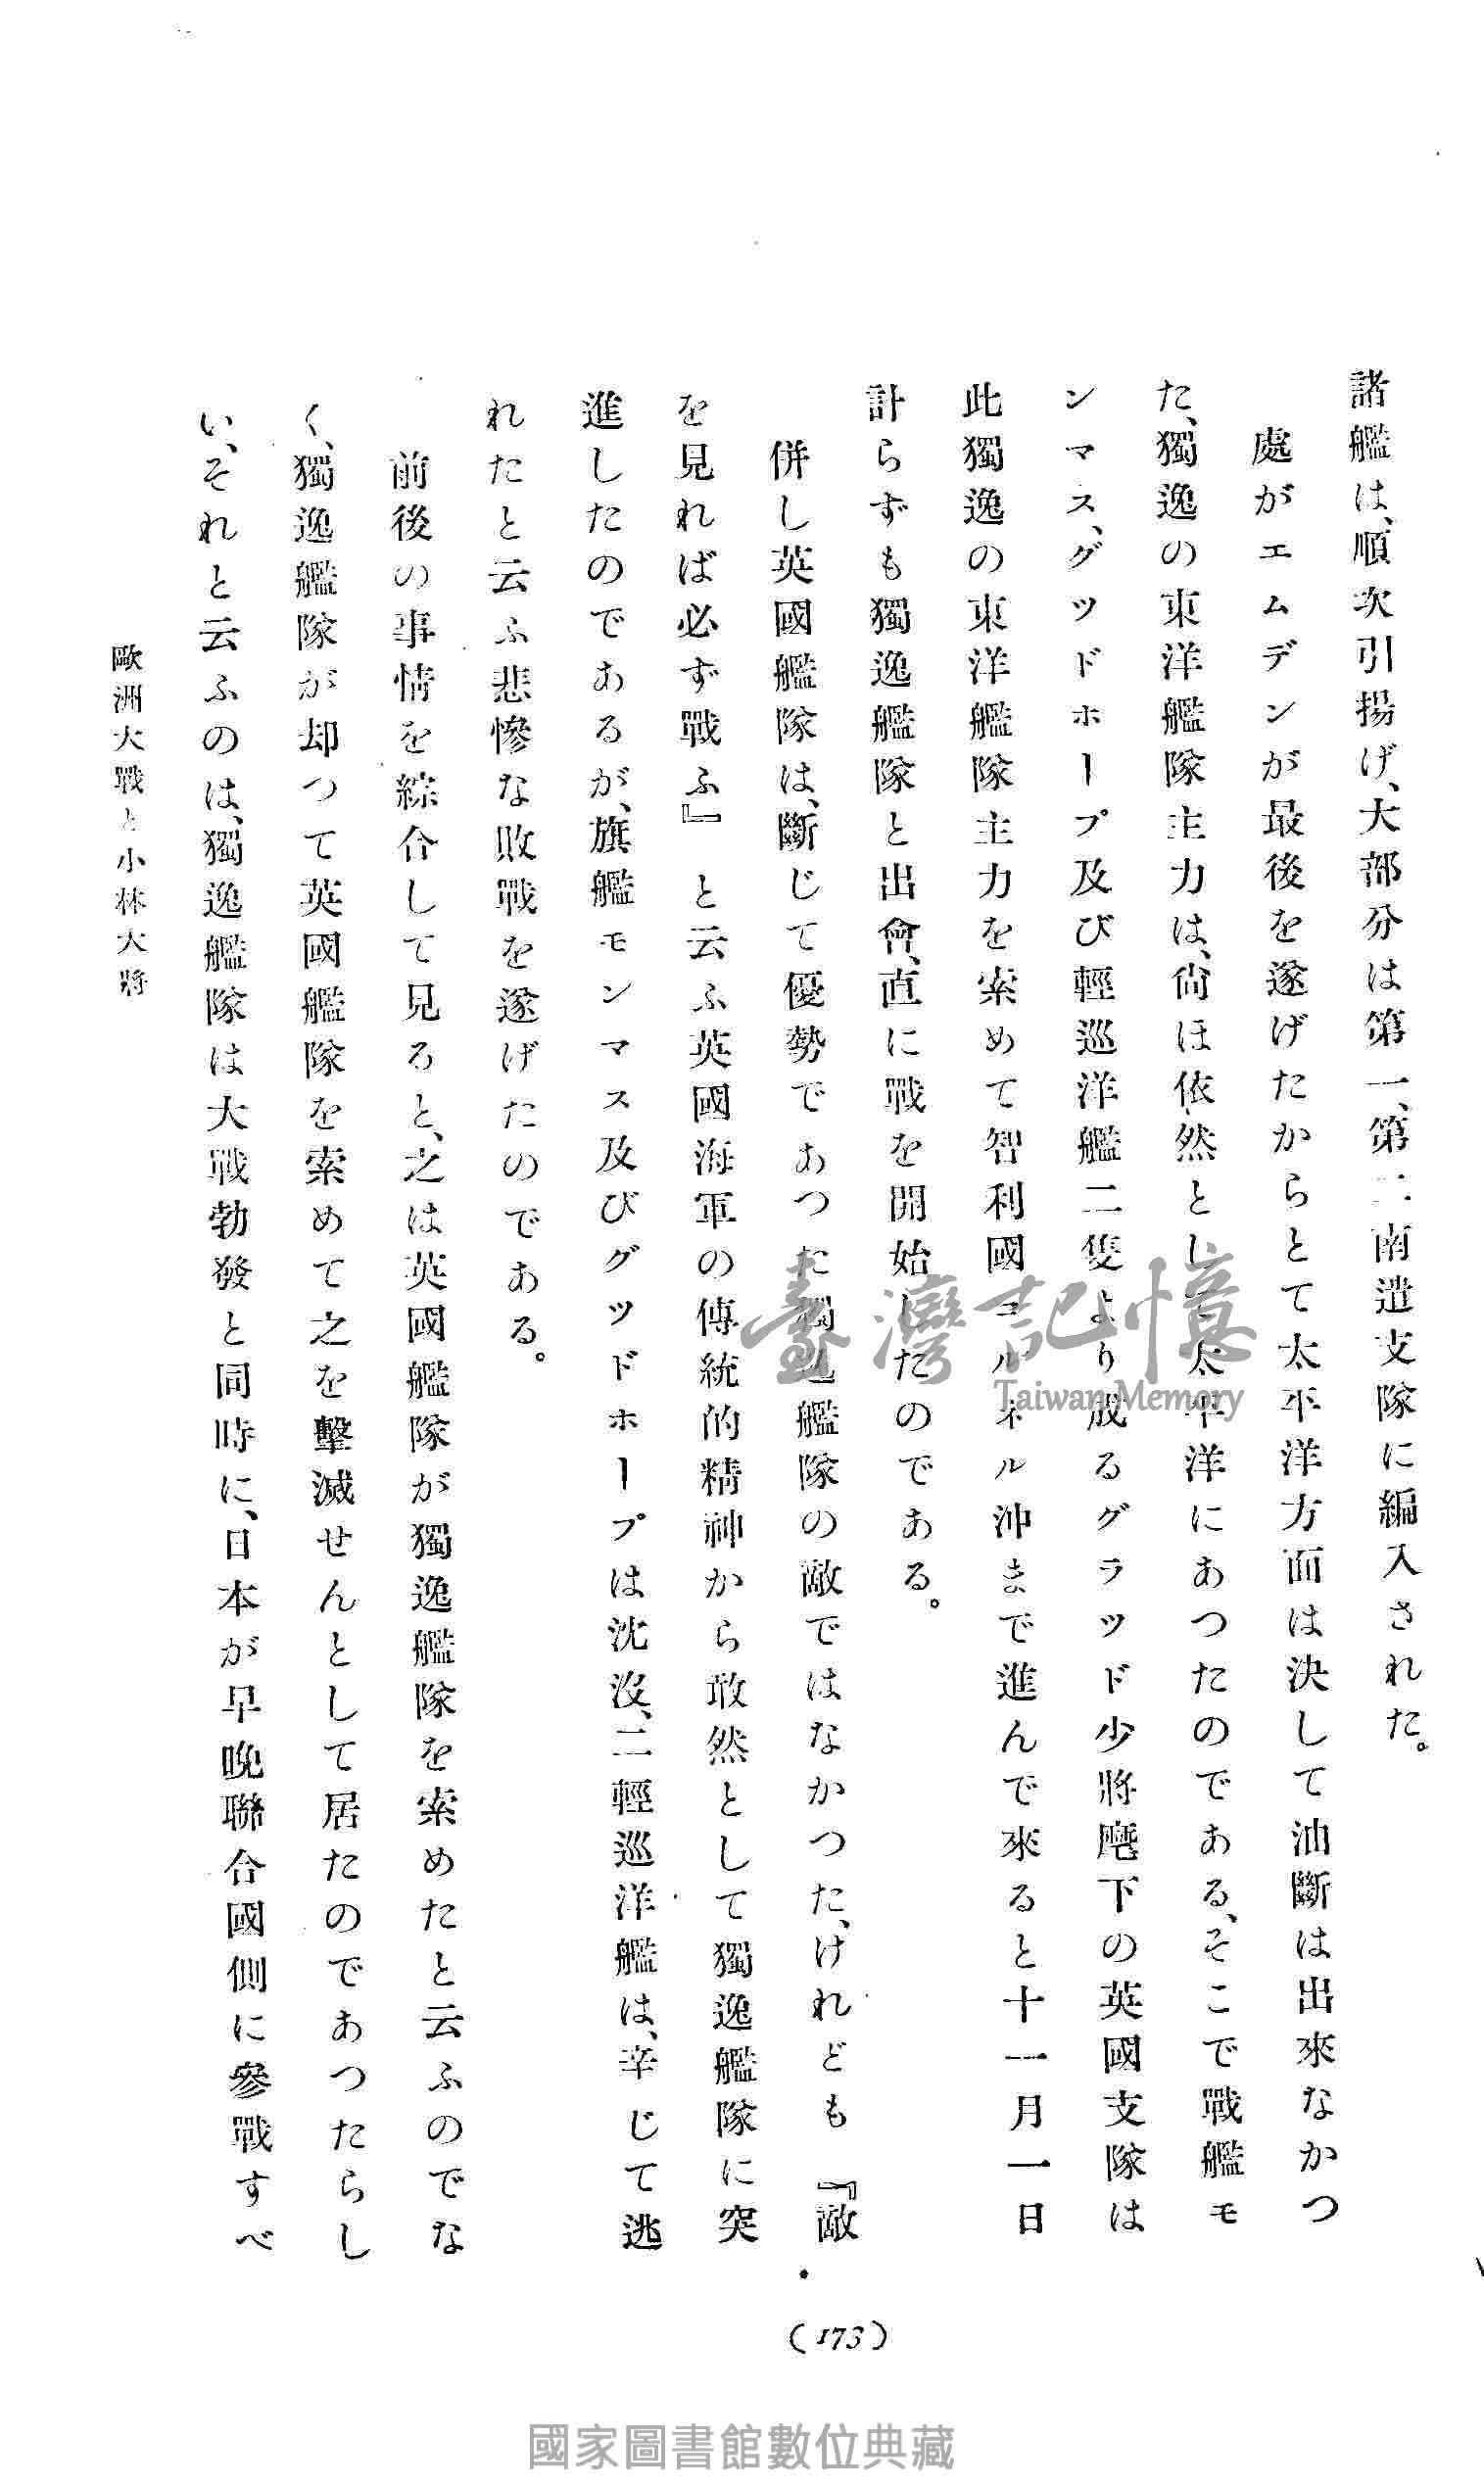 諸艦は、順次引揚げ、大部分は第一、第二南遣支隊に編入された。
處がエムデンが最後を遂げたからとて太平洋方面は決して油斷は出來なかつ
た、獨逸の東洋艦隊主力は、尙ほ依然として太平洋にあつたのである、そこで戰艦モ
ンマス、グツドホープ及び輕巡洋艦二隻より成るグラツドド少將麾下の英國支隊は
此獨逸の東洋艦隊主力を索めて智利國コルネル沖まで進んで來ると十一月一日
計らずも獨逸艦隊と出會、直に戰を開始したのである。
併し英國艦隊は、斷じて優勢であつた獨逸艦隊の敵ではなかつた、けれども『敵
を見れば必ず戰ふ』と云ふ英國海軍の傳統的精神から敢然として獨逸艦隊に突
進したのであるが、旗艦モンマス及びグツドホープは沈沒、二輕巡洋艦は、辛じて逃
れたと云ふ悲慘な敗戰を遂げたのである。
前後の事情を綜合して見ると、之は英國艦隊が獨逸艦隊を索めたと云ふのでな
く、獨逸艦隊が却つて英國艦隊を索めて之を擊滅せんとして居たのであつたらし
い、それと云ふのは、獨逸艦隊は大戰勃發と同時に、日本が早晚聯合國側に參戰すべ
歐洲大戰と小林大將
(173)
臺灣記憶
Taiwan Memory
國家圖書館數位典藏